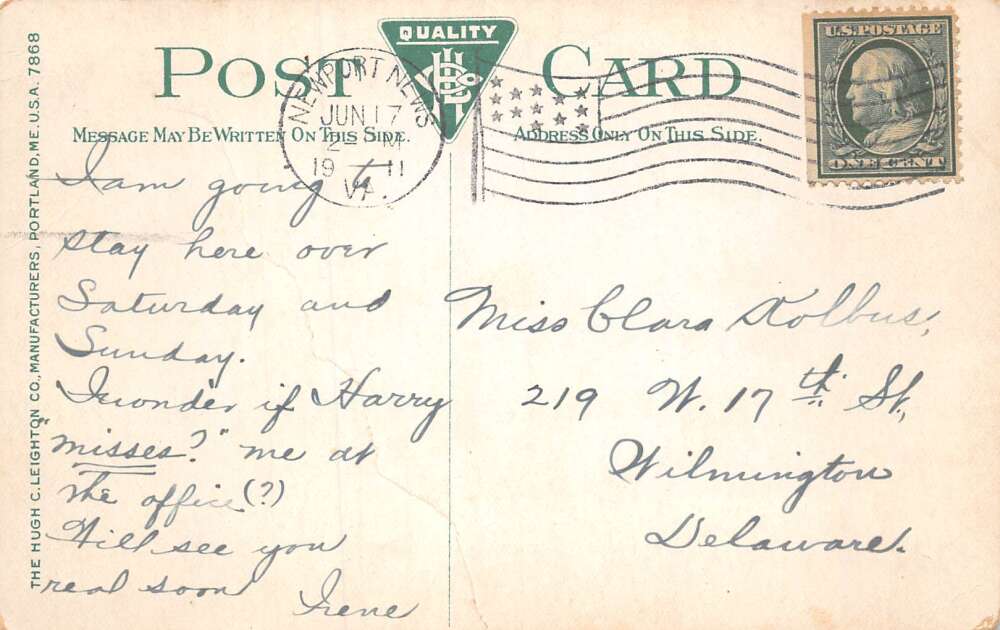 QUALITY
POST CARD
MESSAGE MAY BE WRITTEN ON THIS SIDE.
ADDRESS ONLY ON THIS SIDE.
NEWPORT NEWS
JUN 17
2 - M
19 11
VA.
U.S. POSTAGE
ONE CENT
THE HUGH C. LEIGHTON CO., MANUFACTURERS, PORTLAND, ME. U.S.A. 7868
I am going to
stay here over
Saturday and
Sunday.
I wonder if Harry
"misses?" me at
the office (?)
Will see you
real soon
Irene
Miss Clara Kolbus,
219 W. 17th St,
Wilmington
Delaware.